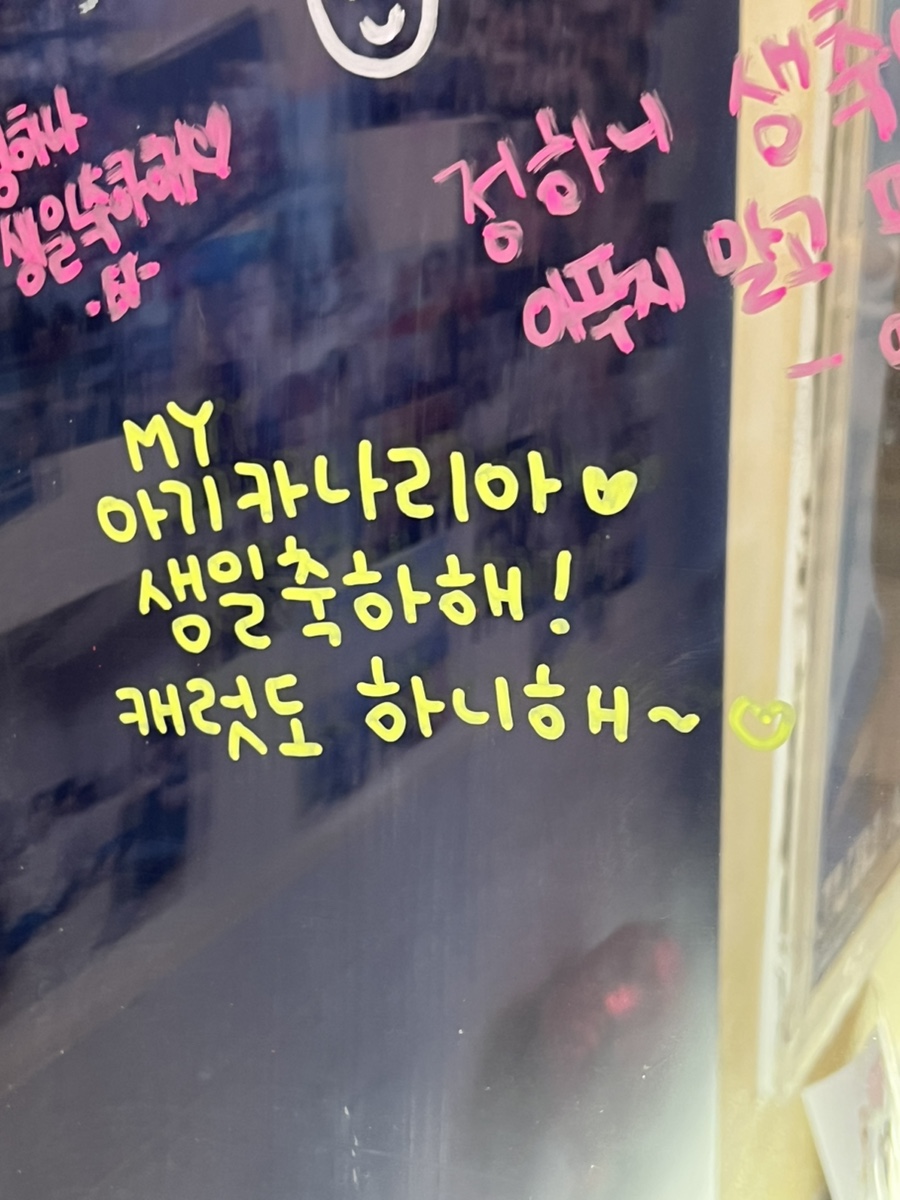 생일축하해♡
-밤-
정하니 생축
아푸지 말고
MY
아기카나리아♥
생일축하해!
캐럿도 하니해~♡